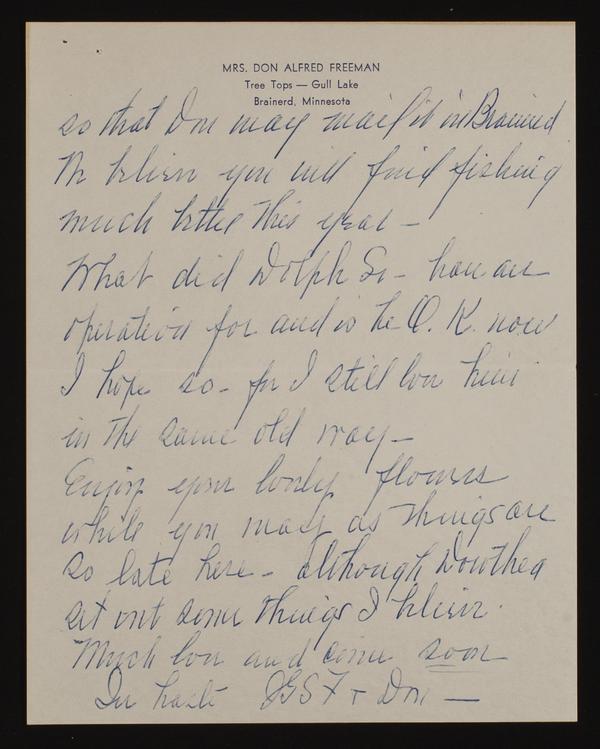 MRS. DON ALFRED FREEMAN
Tree Tops — Gull Lake
Brainerd, Minnesota
so that Don may mail it in Brainerd
We believe you will find fishing
much better this year —
What did Dolph Sr - have an
operation for and is he O. K. now
I hope so - for I still love him
in the same old way —
Enjoy your lovely flowers
while you may as things are
so late here - although Dorothea
set out some things I believe.
Much love and come soon
In haste JGSF + Don —